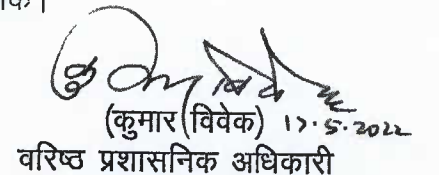 कुमार विवेक
(कुमार विवेक) 17.5.2022
वरिष्ठ प्रशासनिक अधिकारी